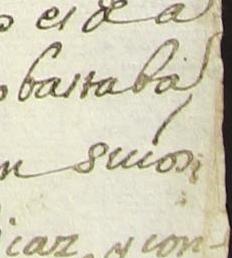 o es de a
o bastaba
n snion
icar, y con-